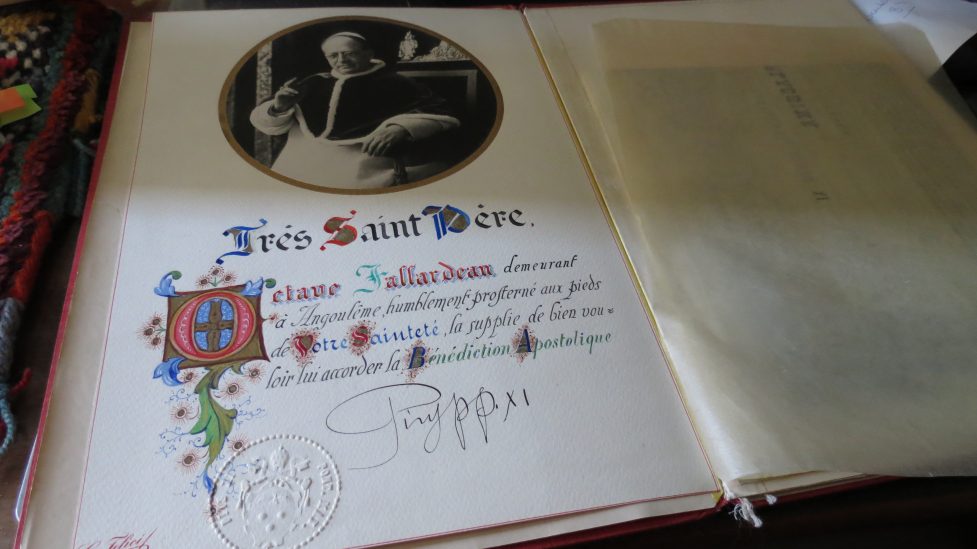 Très Saint Père.
Octave Fallardeau demeurant
à Angoulême, humblement prosterné aux pieds
de Votre Sainteté, la supplie de bien vou=
loir lui accorder la Bénédiction Apostolique
Pius pp. XI